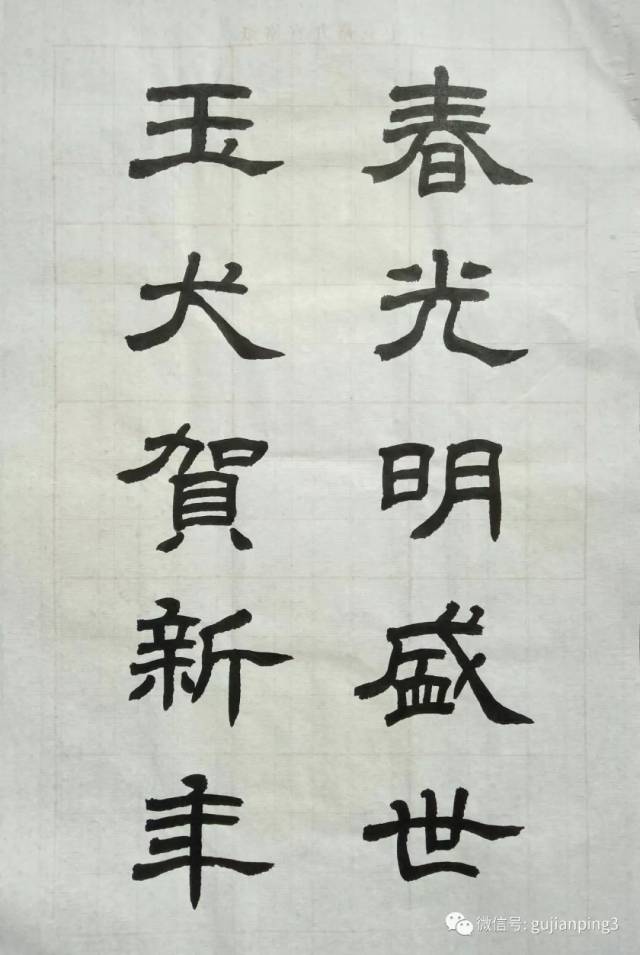 春光明盛世
玉犬賀新年
微信号: gujianping3